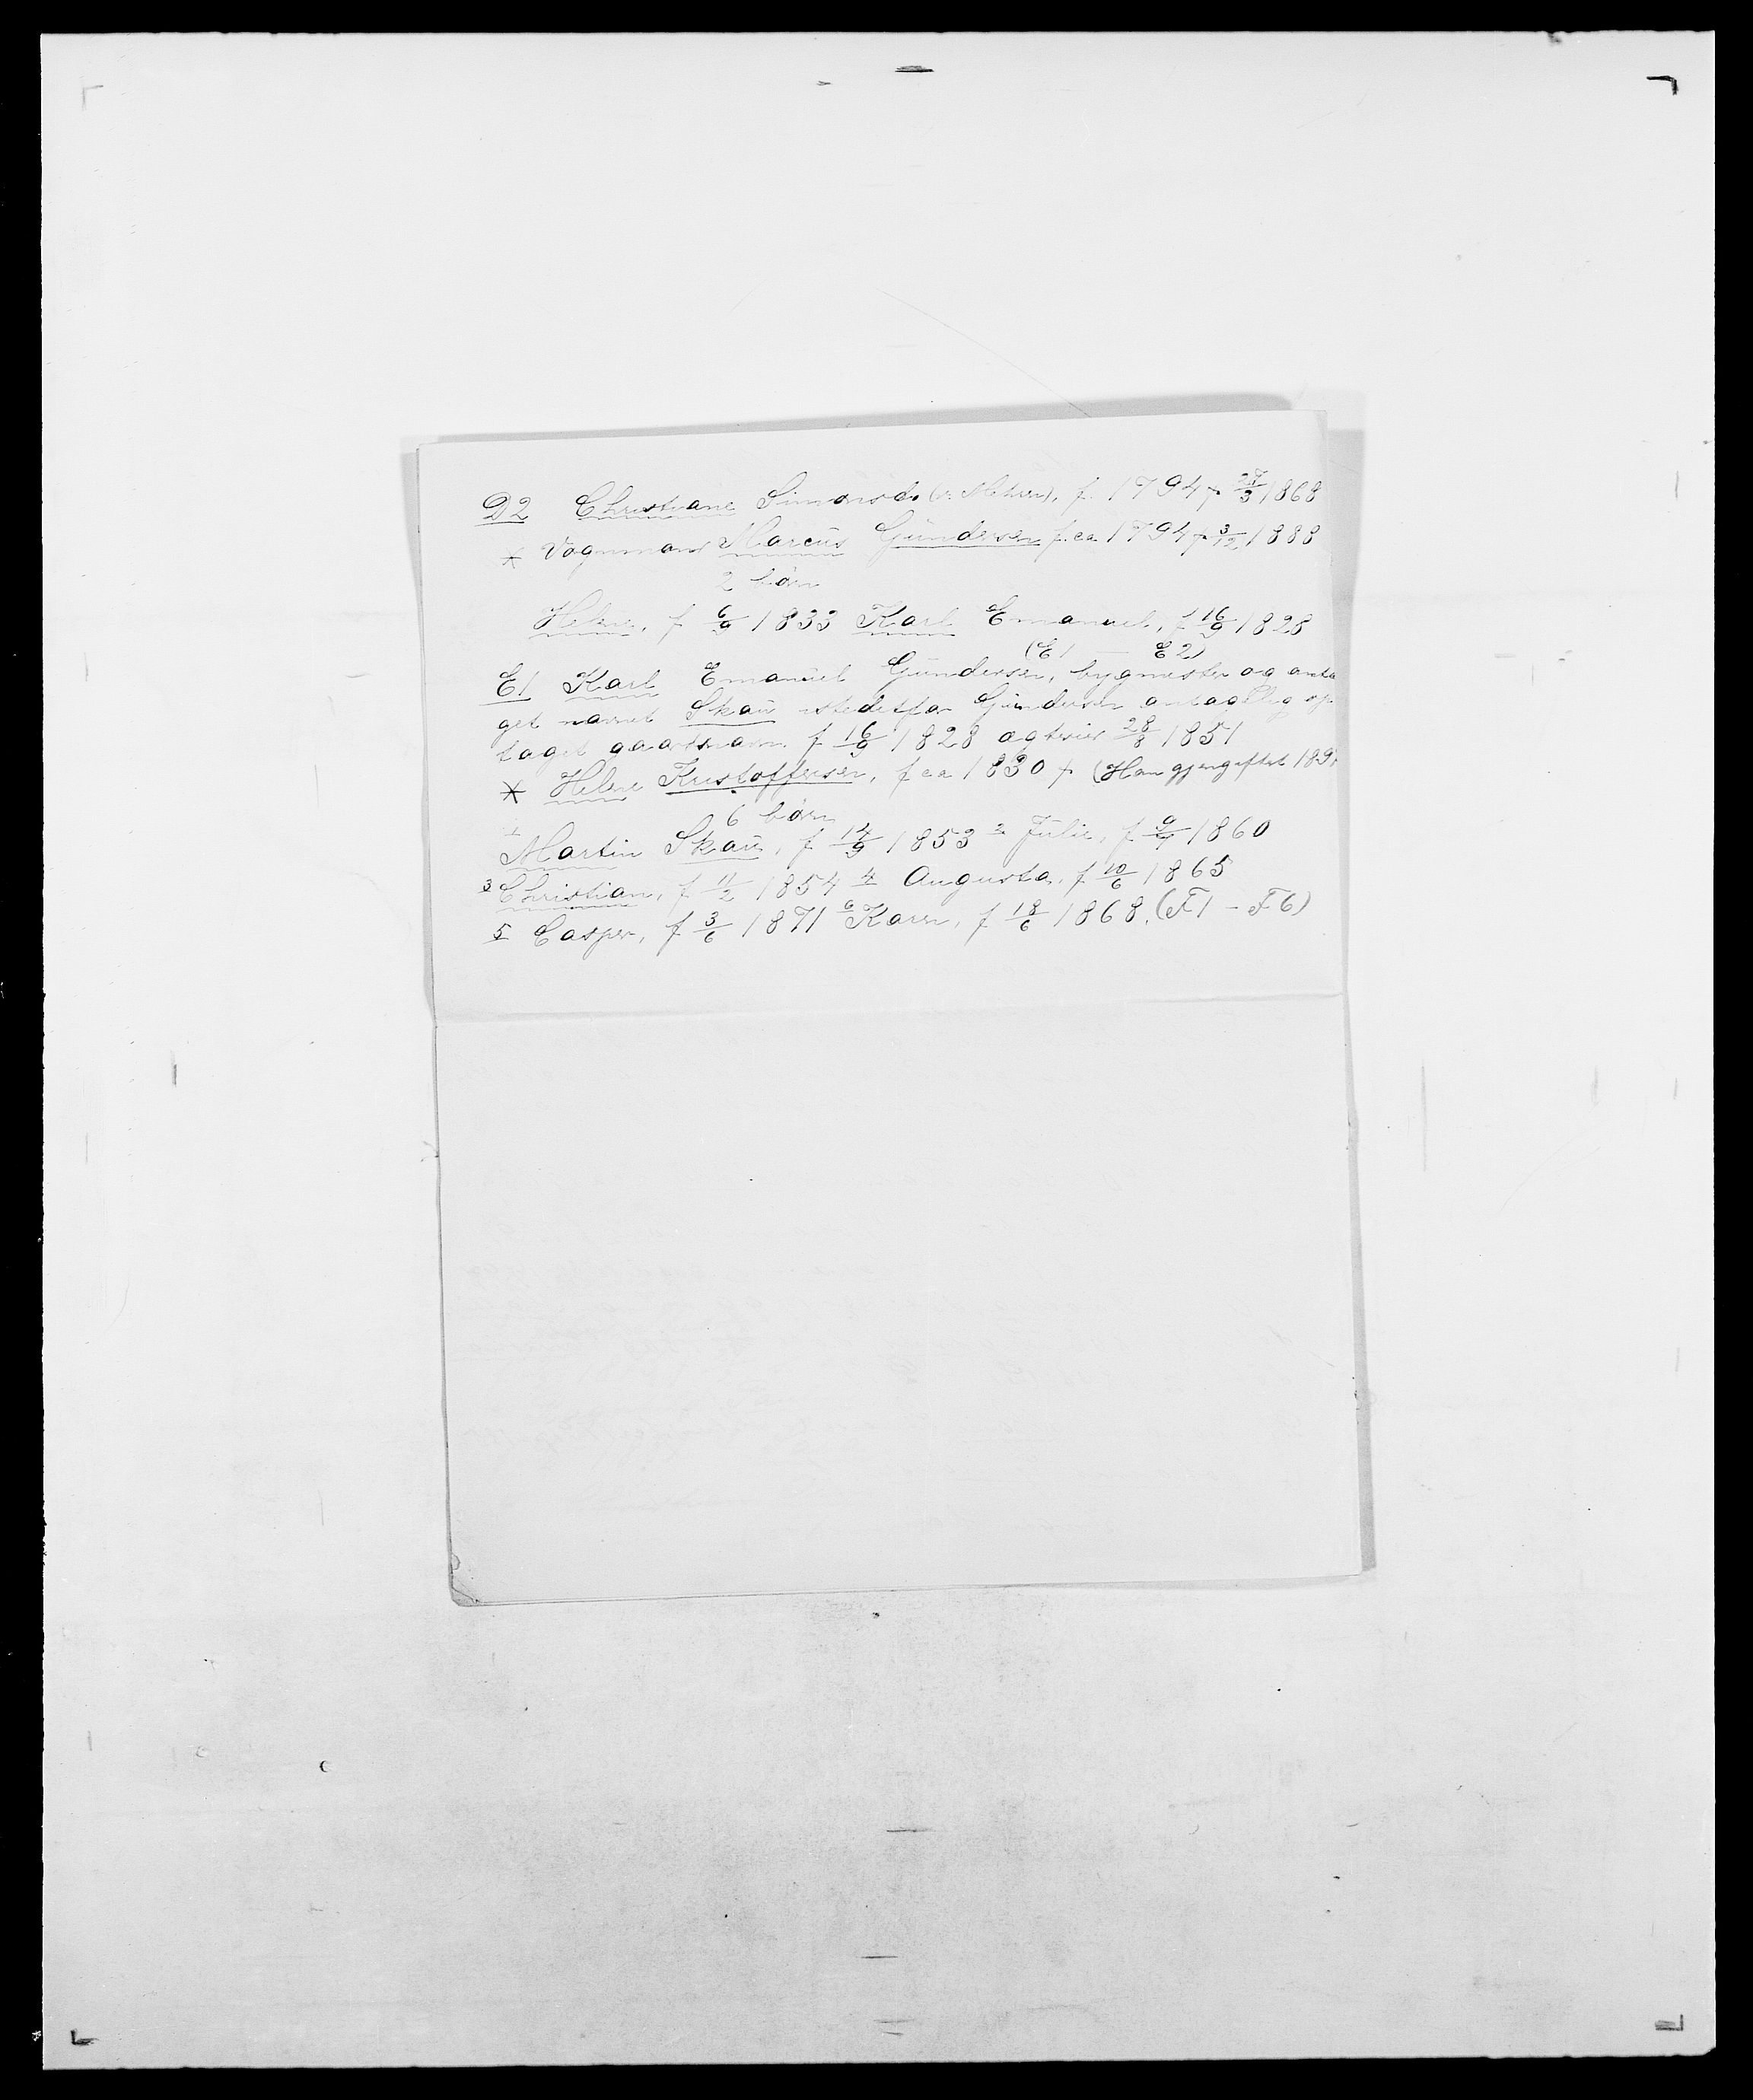 D2 Christiane Simonsd. f. 1794 † 27/3 1868
* Vognmand Marcus Gundersen f. ca 1794 † 3/12 1888
2 børn
Helene, f 6/9 1833 Karl Emanuel, f 16/9 1828
(E1 — E2)
E1 Karl Emanuel Gundersen, bygmester og anta
get navnet Skau istedetfor Gundersen antagelig op-
taget gaardsnavn f 16/9 1828 ægtevier 28/8 1851
* Helene Kristoffersen, f ca 1830 † (Han gjengiftet 189
6 børn
1 Martin Skau, f 14/9 1853 2 Julie, f 9/7 1860
3 Christian, f 11/2 1854 4 Augusta, f 10/6 1865
5 Casper, f 3/6 1871 6 Karen, f 18/6 1868. (F1 - F6)